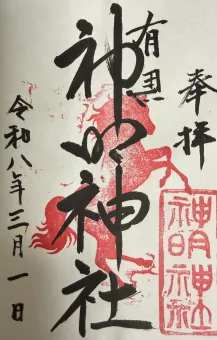 奉拝
有馬
神明神社
神明神社
令和八年三月一日